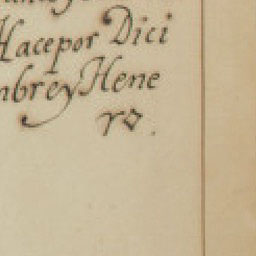 Hacepor Dici
mbrey Hene
ro.